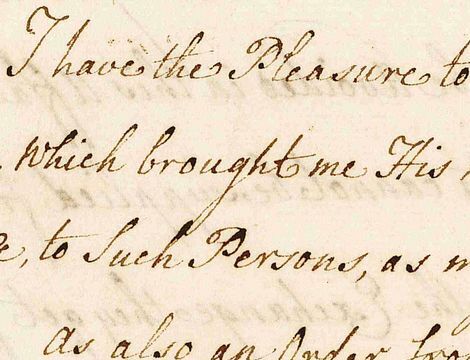 I have the Pleasure to
which brought me His
e, to Such Persons, as m
as also an Order from